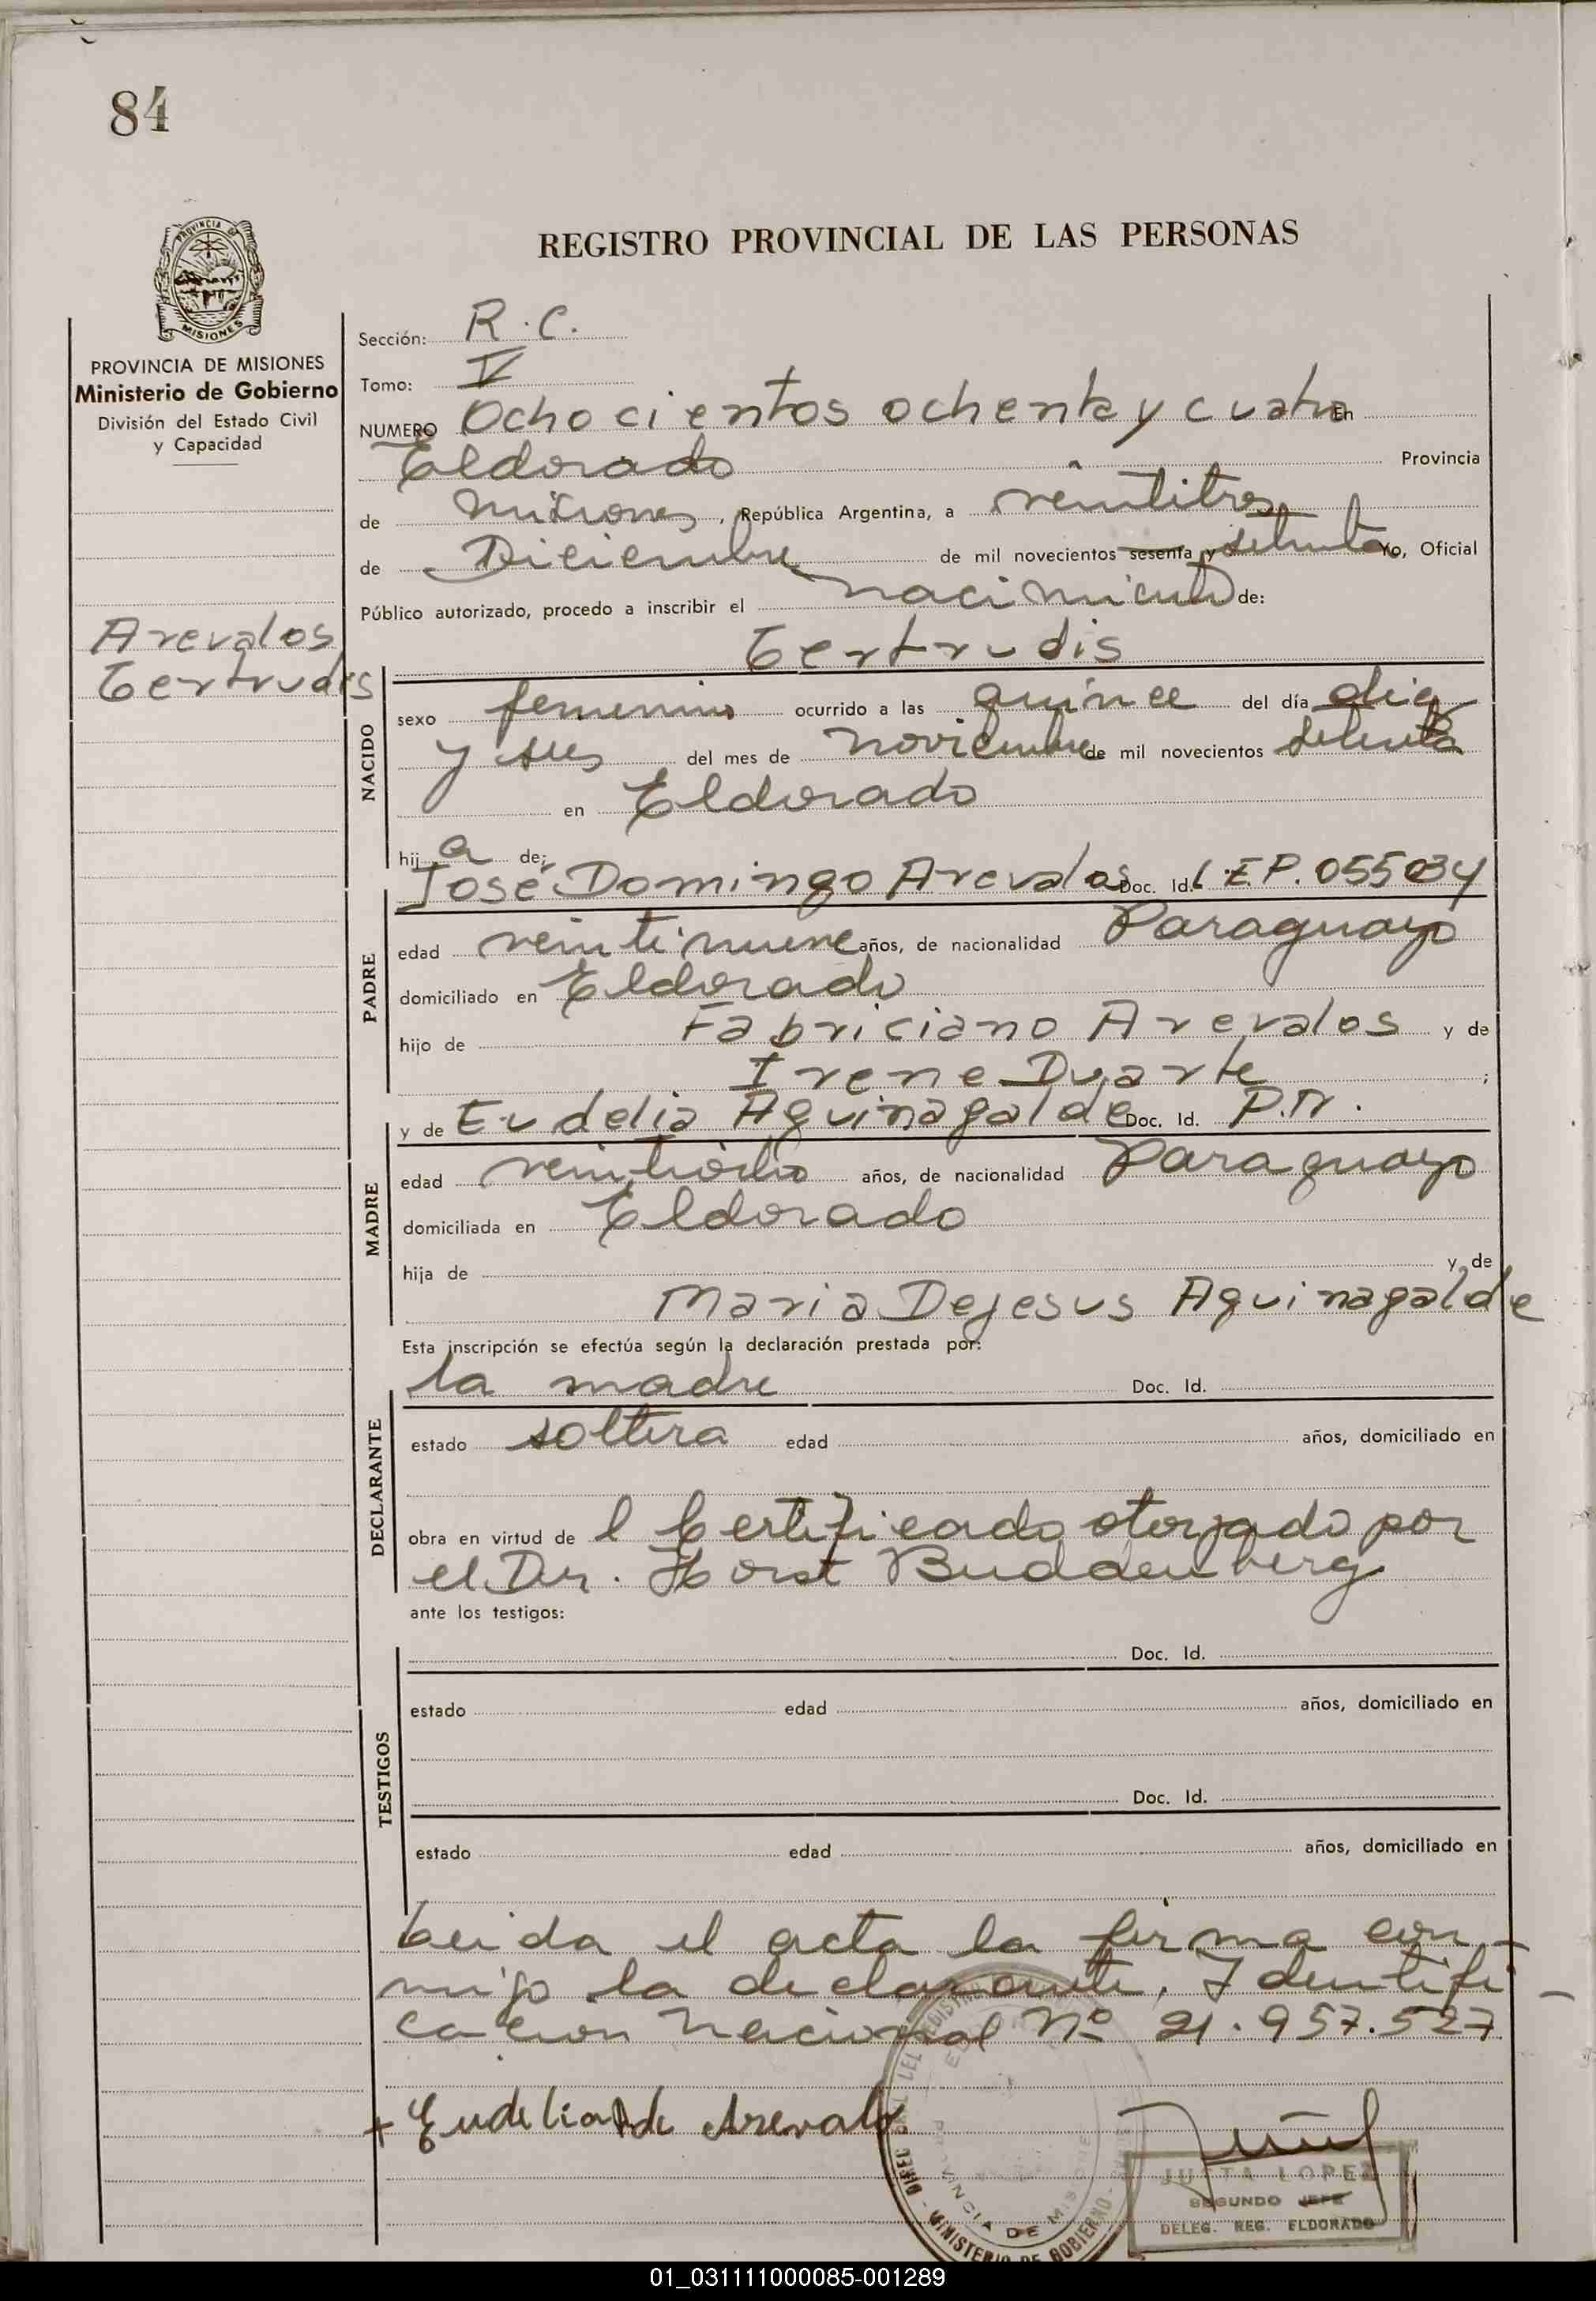 84
PROVINCIA DE
MISIONES
REGISTRO PROVINCIAL DE LAS PERSONAS
PROVINCIA DE MISIONES
Ministerio de Gobierno
División del Estado Civil
y Capacidad
Arevalos
Gertrudis
Sección: R.C.
Tomo: V
NUMERO Ochocientos ochenta y cuatro En
Eldorado Provincia
de Misiones, República Argentina, a veintitres
de Diciembre de mil novecientos sesenta y setenta Yo, Oficial
Público autorizado, procedo a inscribir el nacimiento de:
Gertrudis
NACIDO
sexo femenino ocurrido a las quince del día diez
y seis del mes de noviembre de mil novecientos setenta
en Eldorado
hij a de:
José Domingo Arevalos Doc. Id. C.E.P. 055034
PADRE
edad veintinueve años, de nacionalidad Paraguayo
domiciliado en Eldorado
hijo de Fabriciano Arevalos y de
Irene Duarte ;
y de Eudelia Aguinagalde Doc. Id. P.N.
MADRE
edad veintiocho años, de nacionalidad Paraguayo
domiciliada en Eldorado
hija de y de
Maria Dejesus Aguinagalde
Esta inscripción se efectúa según la declaración prestada por:
la madre Doc. Id.
DECLARANTE
estado soltera edad años, domiciliado en
obra en virtud de l Certificado otorgado por
el Dr. Horst Buddenberg
ante los testigos:
Doc. Id.
TESTIGOS
estado edad años, domiciliado en
Doc. Id.
estado edad años, domiciliado en
Leida el acta la firma con-
migo la declarante. Identifi-
cacion Nacional Nº 21.957.527
+ Eudelia A de Arevalo
JUSTA LOPEZ
SEGUNDO JEFE
DELEG. REG. ELDORADO
PROVINCIA DE MISIONES
MINISTERIO DE GOBIERNO
01_031111000085-001289